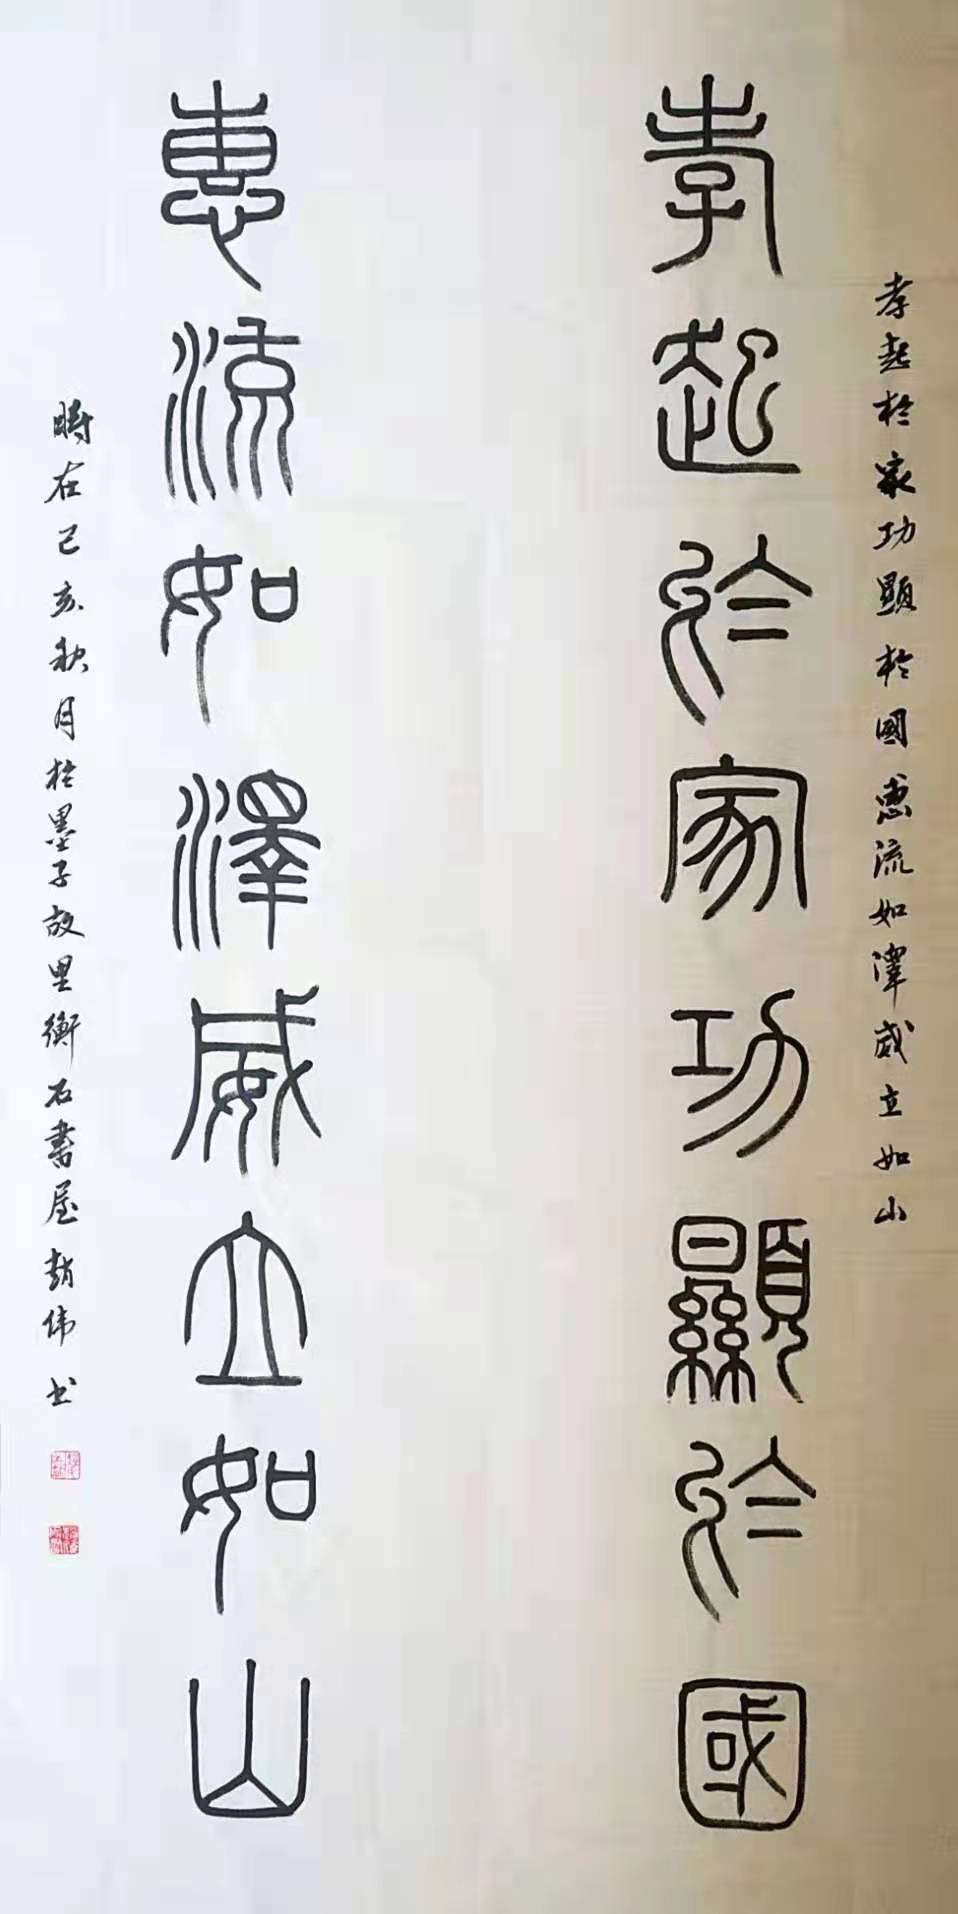 孝起於家功顯於國惠流如澤威立如山
孝起於家功顯於國
惠流如澤威立如山
時在己亥秋月於墨子故里衡石書屋趙伟书